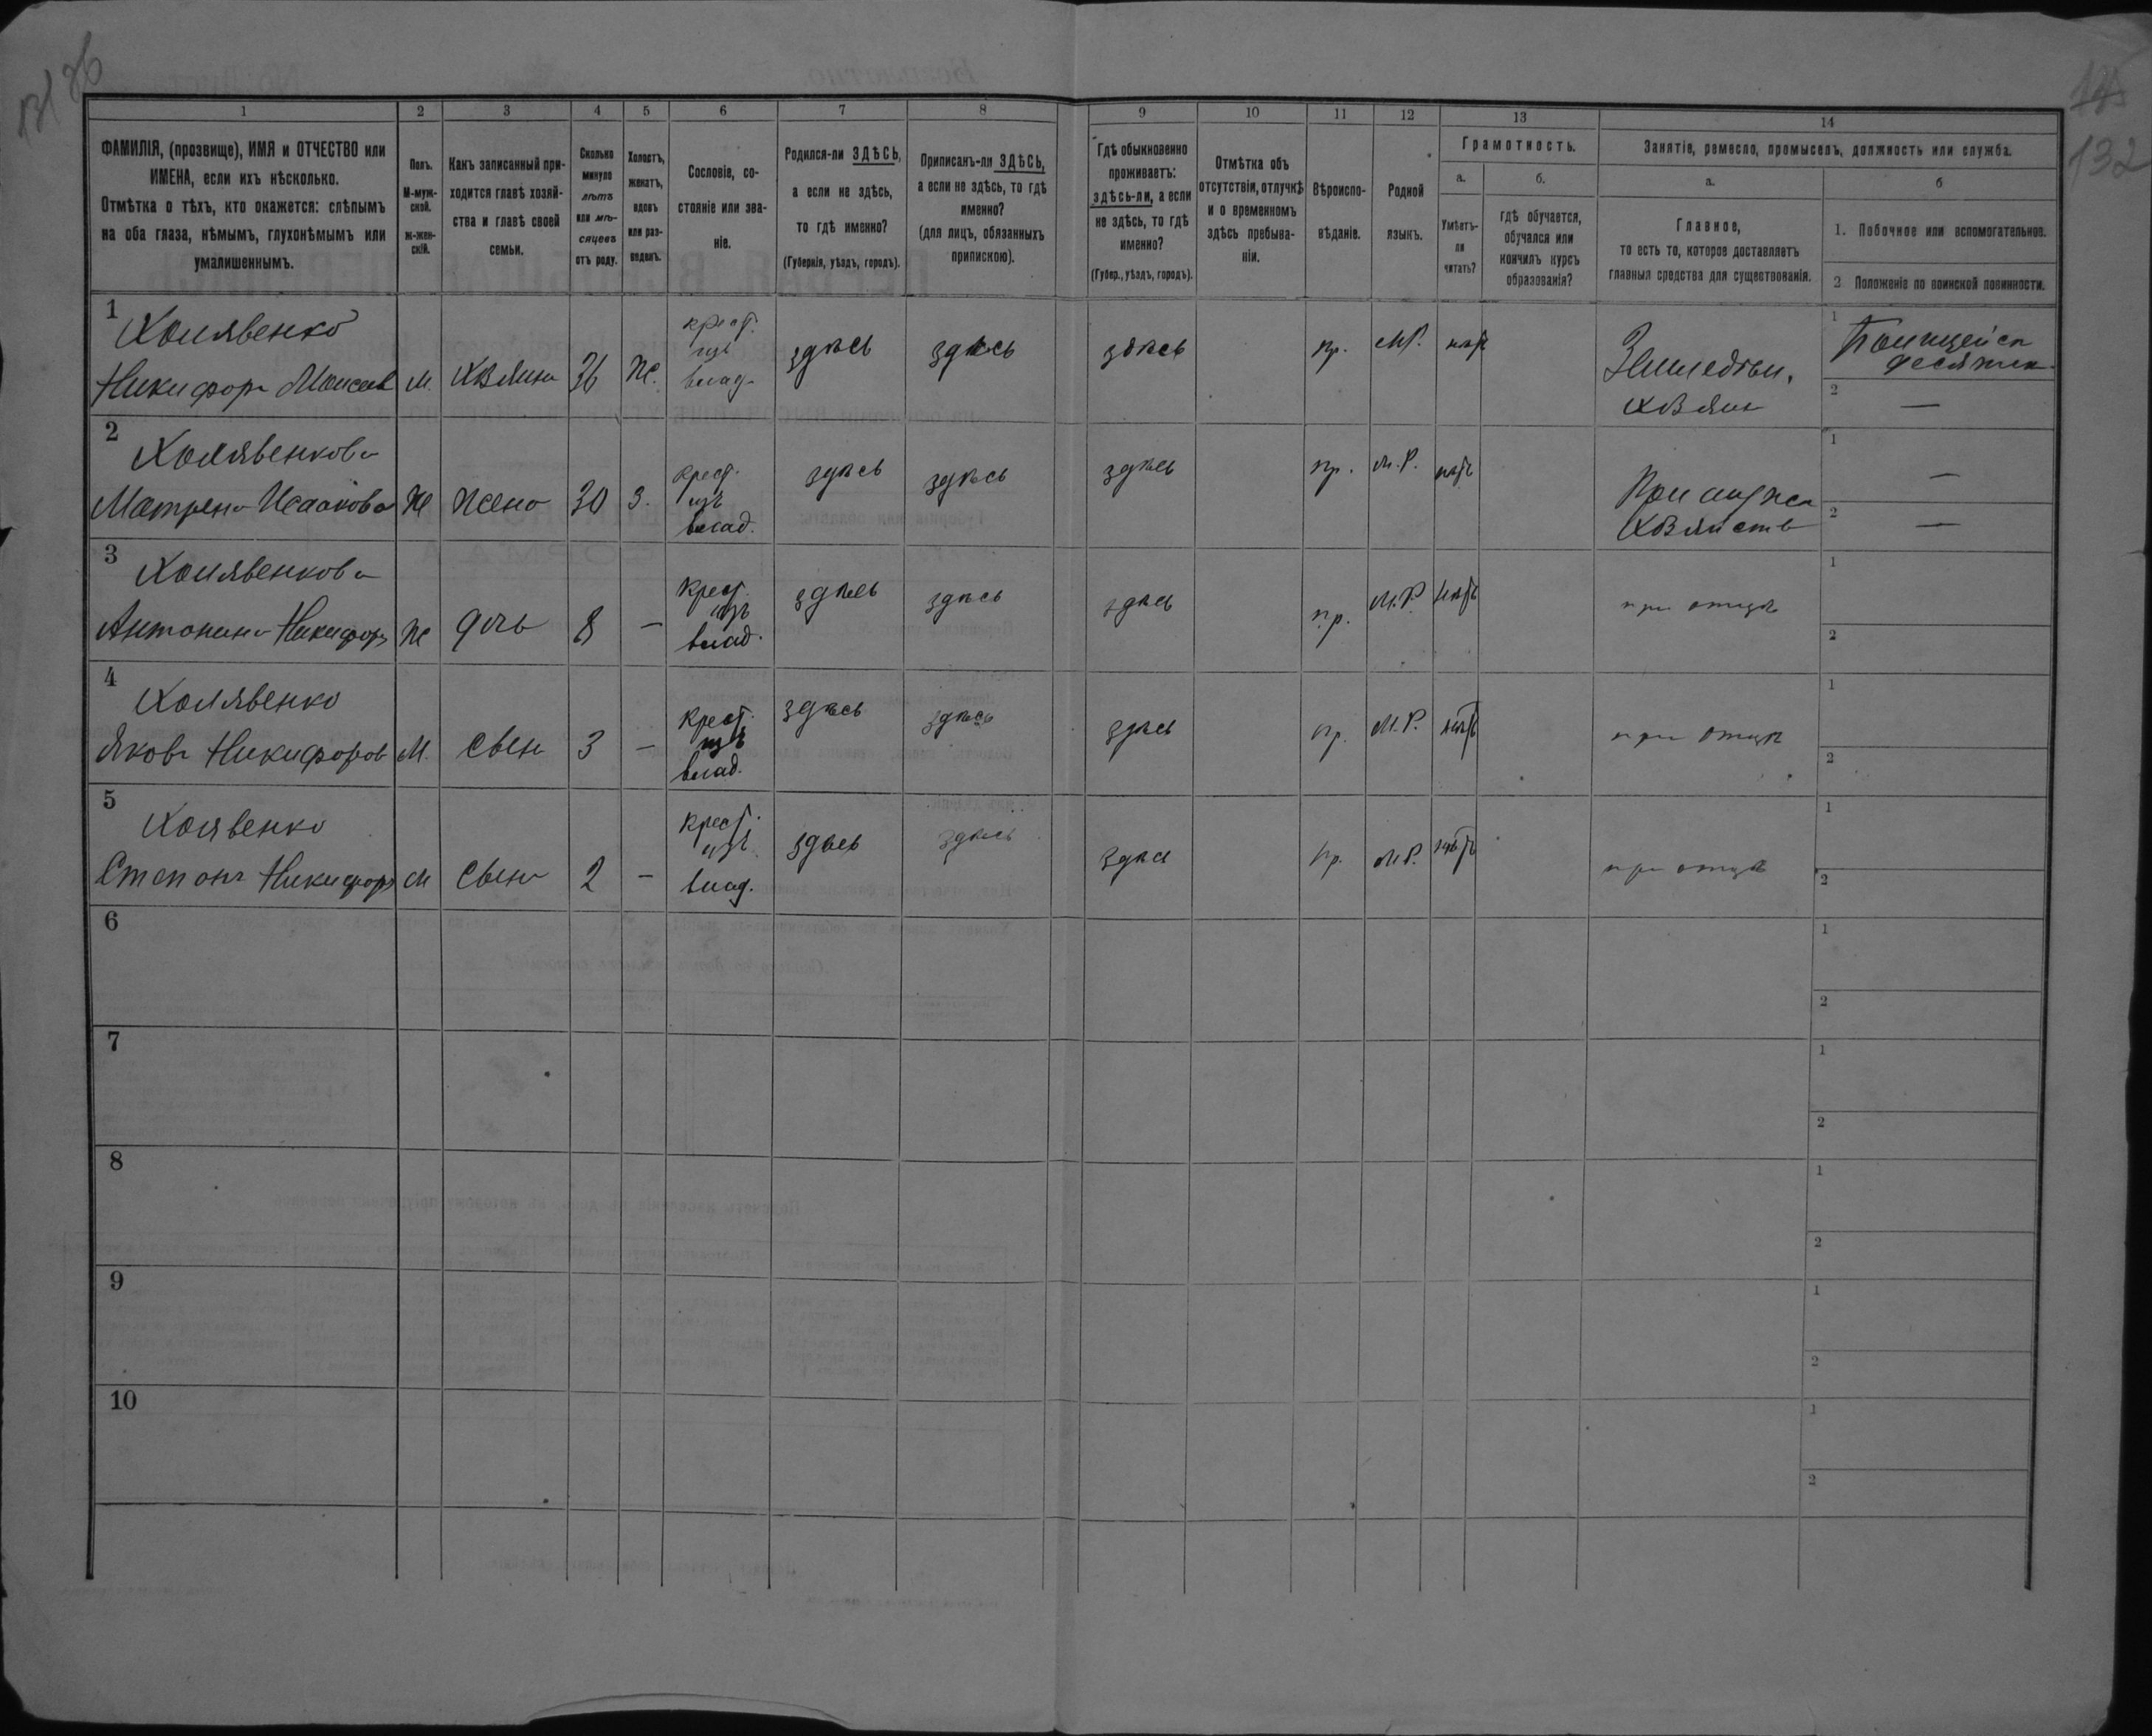 86
132
1 2 3 4 5 6 7 8 9 10 11 12 13 14
ФАМИЛІЯ, (прозвище), ИМЯ и ОТЧЕСТВО или
ИМЕНА, если ихъ нѣсколько.
Отмѣтка о тѣхъ, кто окажется: слѣпымъ
на оба глаза, нѣмымъ, глухонѣмымъ или
умалишеннымъ.
Полъ.
М-муж-
ской.
ж-жен-
скій.
Какъ записанный при-
ходится главѣ хозяй-
ства и главѣ своей
семьи.
Сколько
минуло
лѣтъ
или мѣ-
сяцевъ
отъ роду.
Холостъ,
женатъ,
вдовъ
или раз-
веденъ.
Сословіе, со-
стояніе или зва-
ніе.
Родился-ли ЗДѢСЬ,
а если не здѣсь,
то гдѣ именно?
(Губернія, уѣздъ, городъ).
Приписанъ-ли ЗДѢСЬ,
а если не здѣсь, то гдѣ
именно?
(для лицъ, обязанныхъ
припискою).
Гдѣ обыкновенно
проживаетъ:
здѣсь-ли, а если
не здѣсь, то гдѣ
именно?
(Губер., уѣздъ, городъ).
Отмѣтка объ
отсутствіи, отлучкѣ
и о временномъ
здѣсь пребыва-
ніи.
Вѣроиспо-
вѣданіе.
Родной
языкъ.
Грамотность.
а.
Умѣетъ-
ли
читать?
б.
гдѣ обучается,
обучался или
кончилъ курсъ
образованія?
Занятіе, ремесло, промыселъ, должность или служба.
а.
Главное,
то есть то, которое доставляетъ
главныя средства для существованія.
б
1. Побочное или вспомогательное.
2 Положеніе по воинской повинности.
1
Холявенко
Никифоръ Моисеев
М.
хозяинъ
36
Ж.
крест.
изъ
влад.
здѣсь
здѣсь
здѣсь
пр.
М.Р.
нѣтъ
Земледѣл.
хозяин
1
десятск
2 —
2
Холявенкова
Матрена Исаакова
Ж
жена
30
З.
крест.
изъ
влад.
здѣсь
здѣсь
здѣсь
пр.
М.Р.
нѣтъ
При мужѣ
1 —
2 —
3
Холявенкова
Антонина Никифор
Ж
дочь
8
—
крест.
изъ
влад.
здѣсь
здѣсь
здѣсь
пр.
М.Р.
нѣтъ
при отцѣ
1
2
4
Холявенко
Яковъ Никифоров
М.
сынъ
3
—
крест.
изъ
влад.
здѣсь
здѣсь
здѣсь
пр.
М.Р.
нѣтъ
при отцѣ
1
2
5
Холявенко
Степанъ Никифор
М
сынъ
2
—
крест.
изъ
влад.
здѣсь
здѣсь
здѣсь
пр.
М.Р.
нѣтъ
при отцѣ
1
2
6
1
2
7
1
2
8
1
2
9
1
2
10
1
2